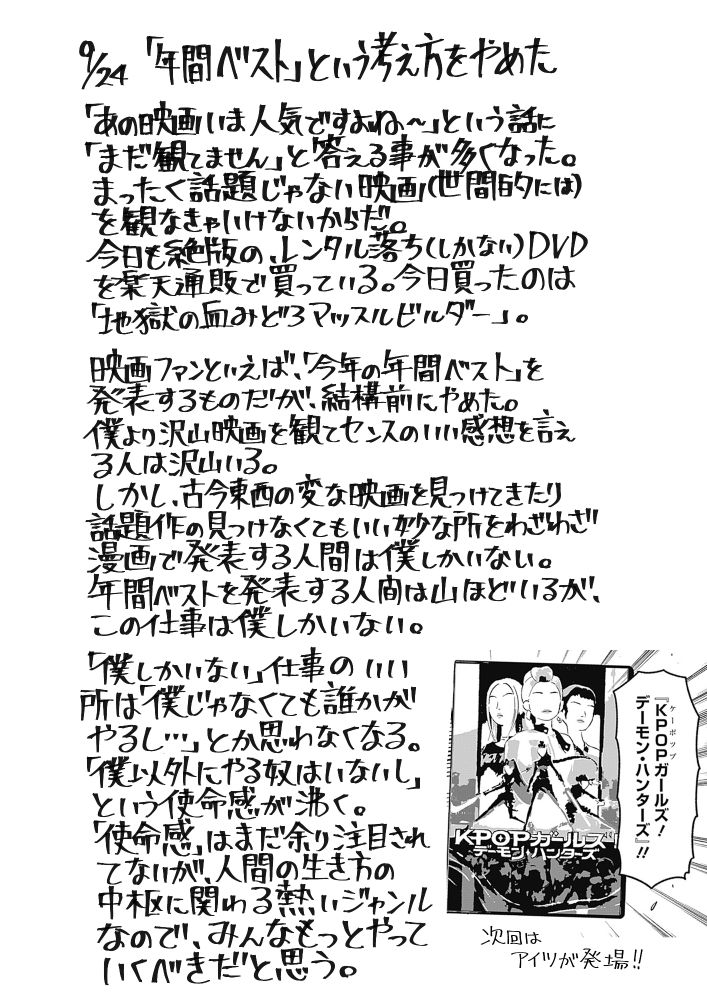 9/24「年間ベスト」という考え方をやめた
「あの映画いま人気ですよね〜」という話に
「まだ観てません」と答える事が多くなった。
まったく話題じゃない映画(世間的には)
を観なきゃいけないからだ。
今日も絶版の、レンタル落ち(しかない)DVD
を楽天通販で買っている。今日買ったのは
「地獄の血みどろマッスルビルダー」。
映画ファンといえば、「今年の年間ベスト」を
発表するものだが、結構前にやめた。
僕より沢山映画を観てセンスのいい感想を言え
る人は沢山いる。
しかし、古今東西の変な映画を見つけてきたり
話題作の見つけなくてもいい妙な所をわざわざ
漫画で発表する人間は僕しかいない。
年間ベストを発表する人間は山ほどいるが、
この仕事は僕しかいない。
「僕しかいない」仕事のいい
所は「僕じゃなくても誰かが
やるし…」とか思わなくなる。
「僕以外にやる奴はいないし」
という使命感が沸く。
「使命感」はまだ余り注目され
てないが、人間の生き方の
中枢に関わる熱いジャンル
なので、みんなもっとやって
いくべきだと思う。
『KPOPガールズ!
ケーポップ
デーモン・ハンターズ』!!
KPOPガールズ!
デーモン・ハンターズ
次回は
アイツが発場!!